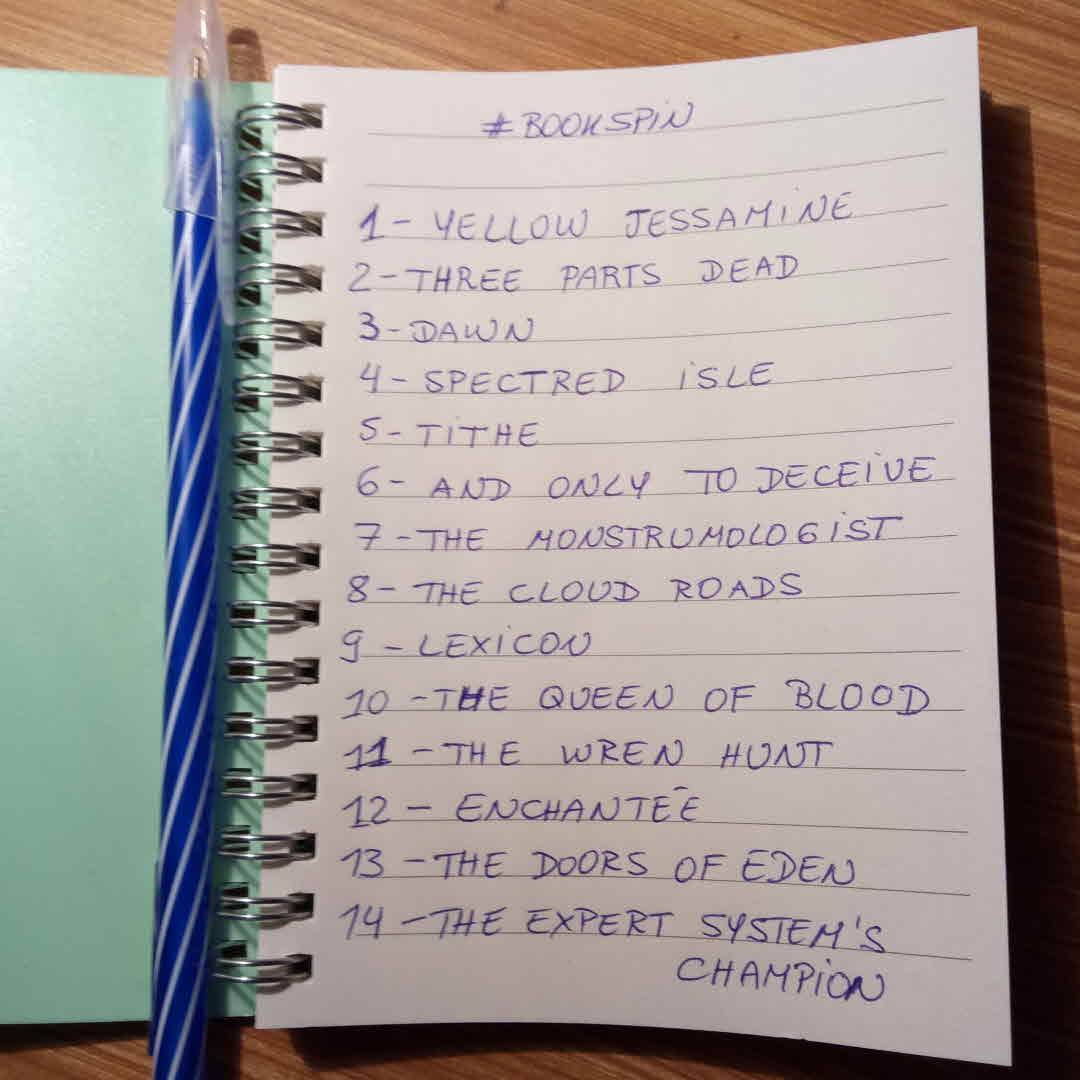 #BOOKSPiN
1 - YELLOW JESSAMiNE
2 - THREE PARTS DEAD
3 - DAWN
4 - SPECTRED iSLE
5 - TiTHE
6 - AND ONLY TO DECEiVE
7 - THE MONSTRUMOLOGiST
8 - THE CLOUD ROADS
9 - LEXiCON
10 - THE QUEEN OF BLOOD
11 - THE WREN HUNT
12 - ENCHANTÉE
13 - THE DOORS OF EDEN
14 - THE EXPERT SYSTEM'S
CHAMPiON